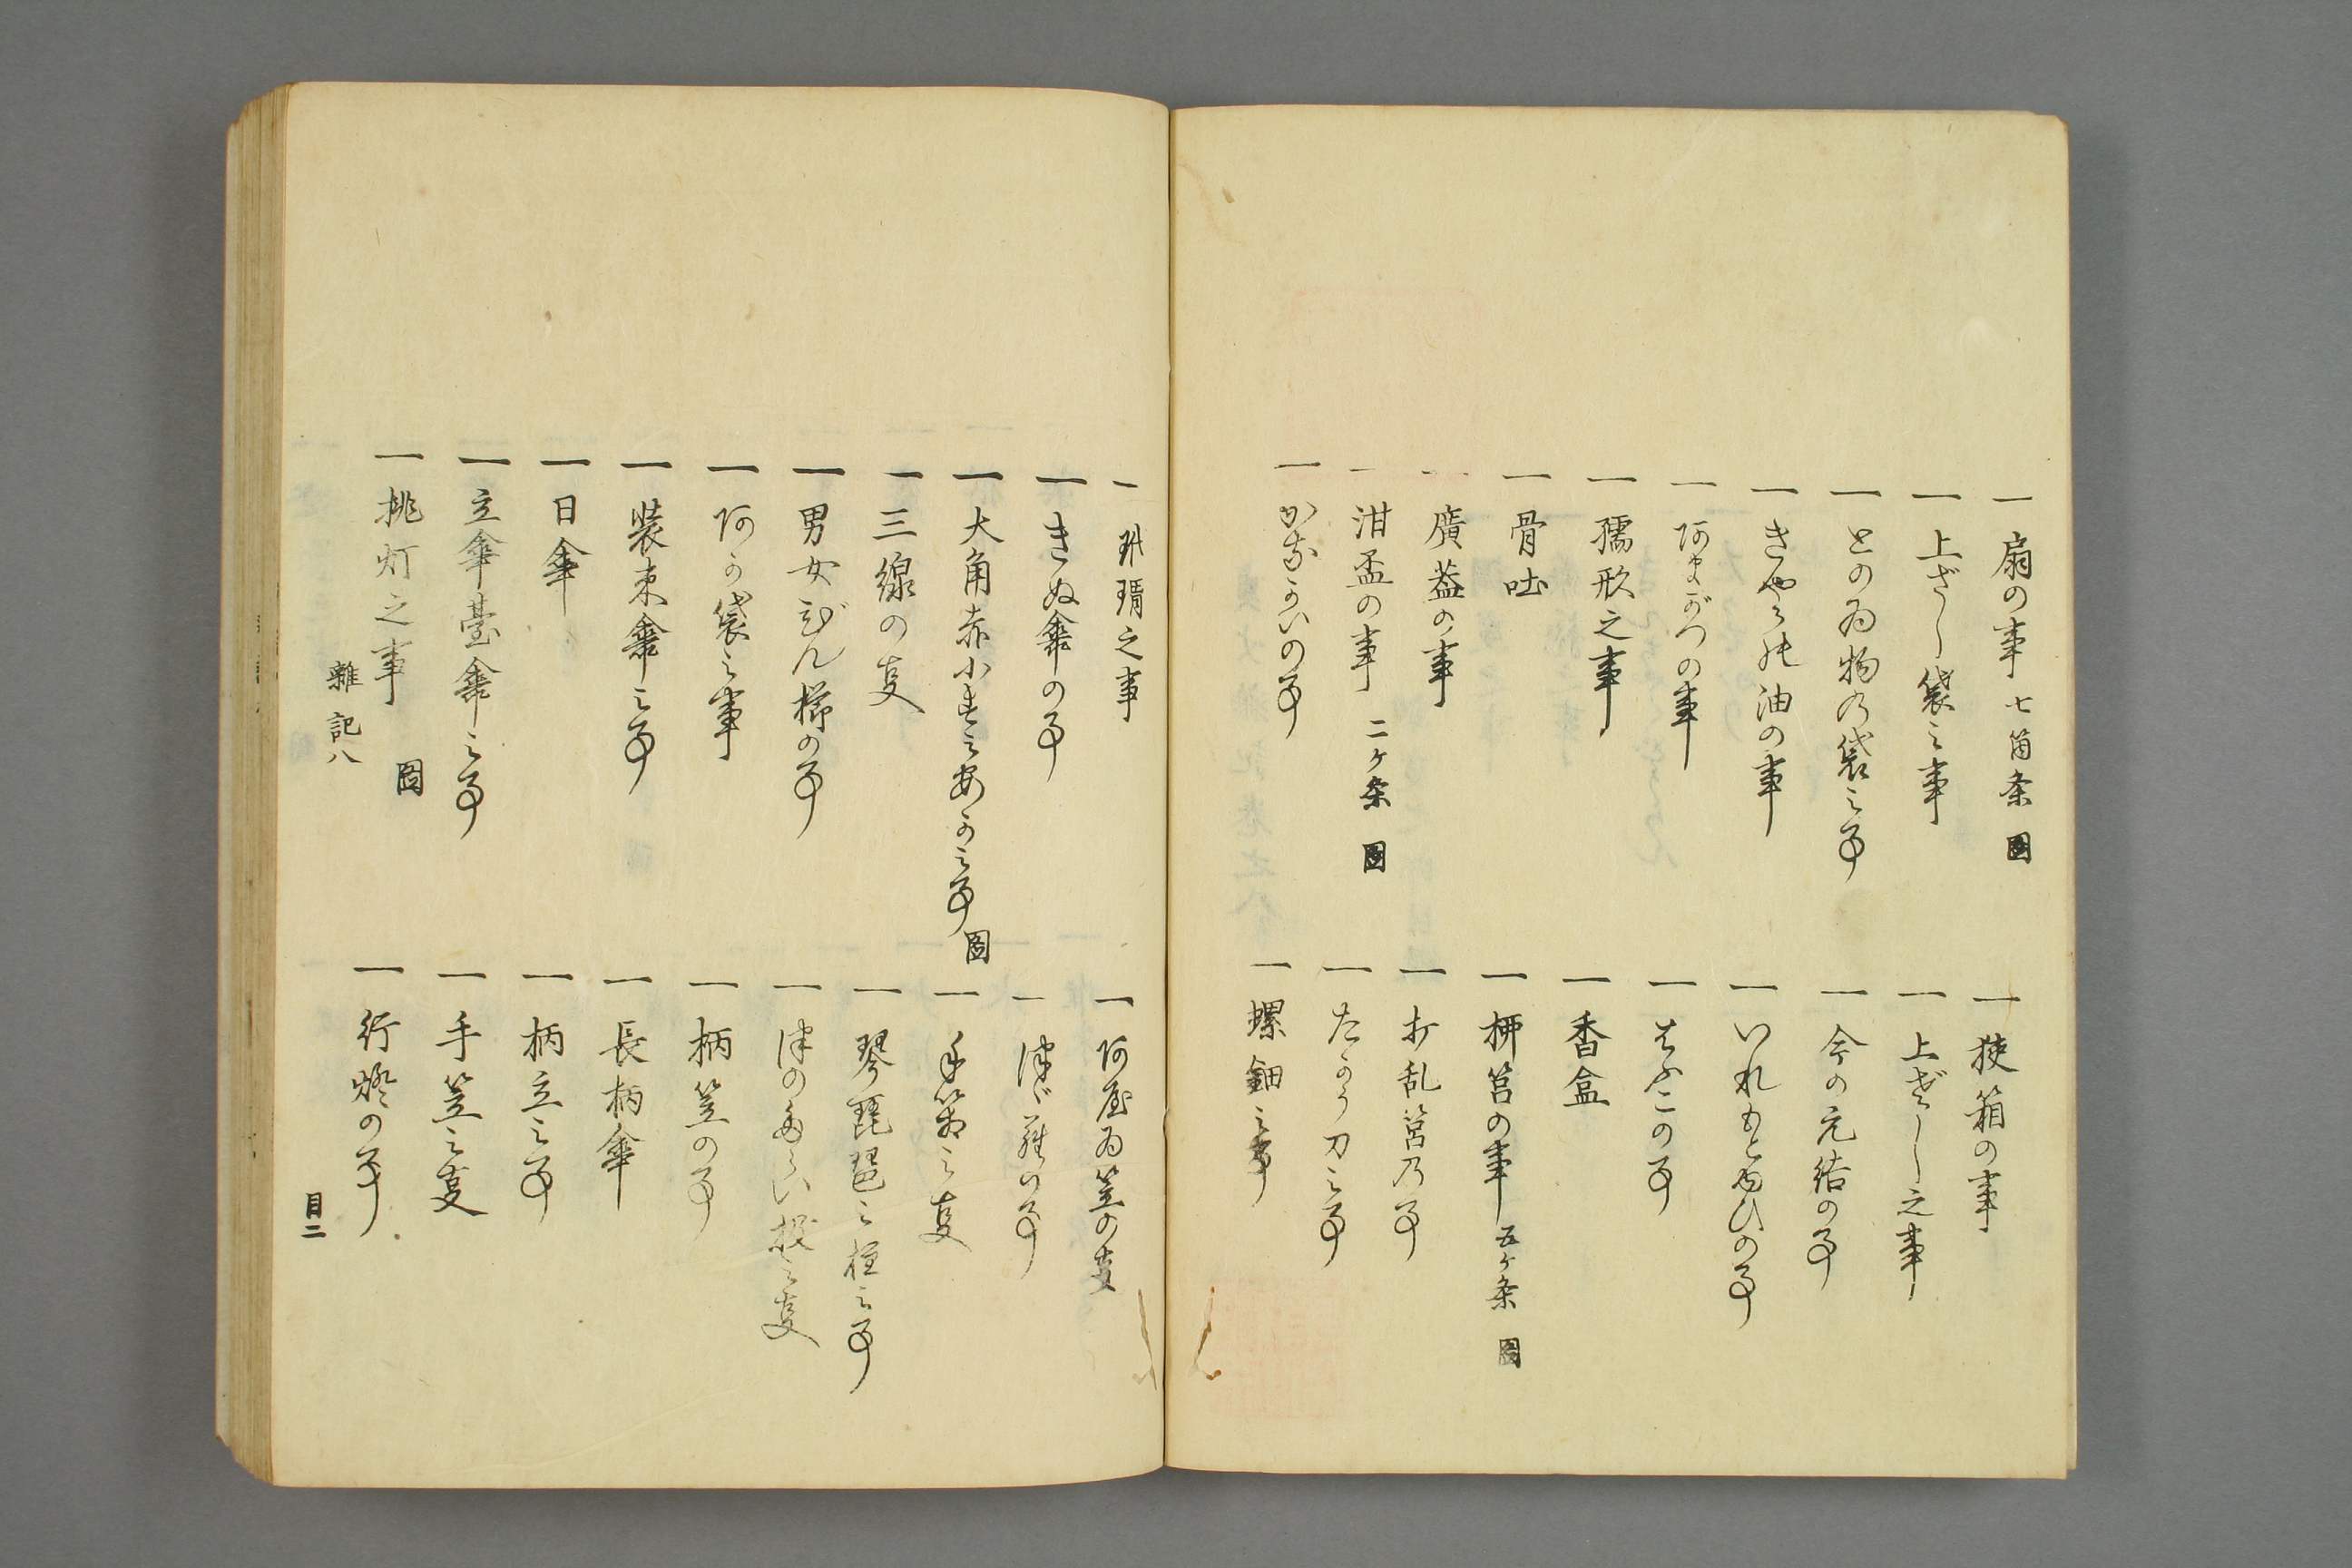 一 扇の事 七箇条 圖
一 狭箱の事
一 上ざし袋之事
一 上ざし之事
一 とのゐ物の袋之事
一 今の元結の事
一 きやら油の事
一 いれもとゆひの事
一 阿まがつの事
一 はふこの事
一 孺形之事
一 香盒
一 骨吐
一 柳筥の事 五ケ条 圖
一 廣葢の事
一 打乱筥乃事
一 泔盃の事 二ケ条 圖
一 たかう刀之事
一 かなかいの事
一 螺鈿之事
一 玳瑁之事
一 阿屋ゐ笠の事
一 きぬ傘の事
一 津ゞ羅の事
一 大角赤小
一 三線の事
一 琴琵琶之柱之事
一 男女びん櫛の事
一 津のたらい
一 阿か袋之事
一 柄笠の事
一 装束傘之事
一 長柄傘
一 日傘
一 柄立之事
一 立傘臺傘之事
一 手笠之事
一 挑灯之事 圖
一 行燈の事
雜記八
目二